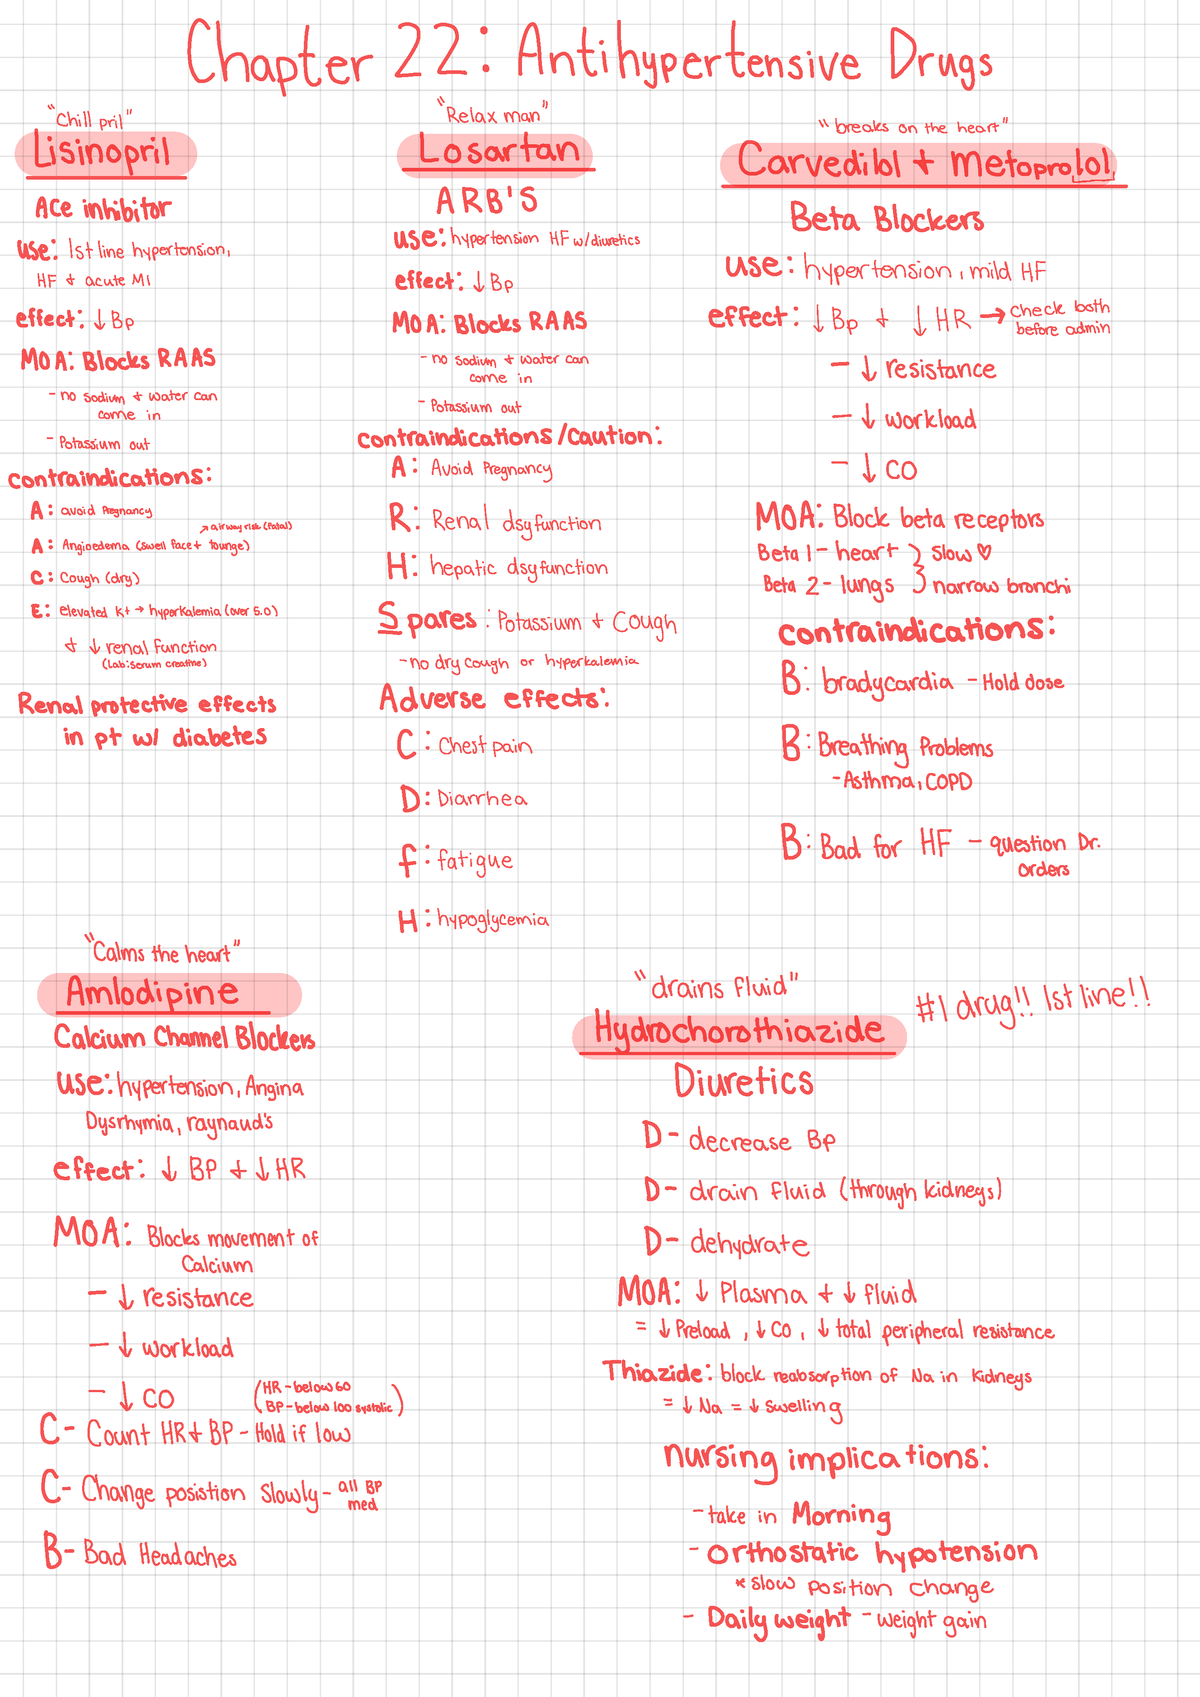 Chapter 22: Antihypertensive Drugs
"Chill pril"
Lisinopril
Ace inhibitor
use: 1st line hypertension,
HF + acute MI
effect: ↓ Bp
MOA: Blocks RAAS
- no Sodium + Water can
come in
- Potassium out
contraindications:
A: avoid Pregnancy
↗ airway risk (fatal)
A: Angioedema (swell face + tounge)
C: Cough (dry)
E: elevated K+ → hyperkalemia (over 5.0)
+ ↓ renal function
(Lab: Serum creatine)
Renal protective effects
in pt w/ diabetes
"Relax man"
Losartan
ARB'S
use: hypertension HF w/diuretics
effect: ↓ Bp
MOA: Blocks RAAS
- no Sodium + Water can
come in
- Potassium out
contraindications/Caution:
A: Avoid Pregnancy
R: Renal dsyfunction
H: hepatic dsyfunction
Spares: Potassium + Cough
- no dry cough or hyperkalemia
Adverse effects:
C: Chest pain
D: Diarrhea
f: fatigue
H: hypoglycemia
"breaks on the heart"
Carvedilol + Metoprolol
Beta Blockers
use: hypertension, mild HF
effect: ↓ Bp + ↓ HR → check both
before admin
- ↓ resistance
- ↓ workload
- ↓ CO
MOA: Block beta receptors
Beta 1 - heart } Slow ♡
Beta 2 - lungs } narrow bronchi
contraindications:
B: bradycardia - Hold dose
B: Breathing Problems
- Asthma, COPD
B: Bad for HF - question Dr.
orders
"Calms the heart"
Amlodipine
Calcium Channel Blockers
use: hypertension, Angina
Dysrhymia, raynaud's
effect: ↓ BP + ↓ HR
MOA: Blocks movement of
Calcium
- ↓ resistance
- ↓ workload
- ↓ CO
(HR - below 60
BP - below 100 systolic)
C- Count HR + BP - Hold if low
C- Change posistion Slowly - all BP
med
B- Bad Headaches
"drains fluid"
Hydrochorothiazide
#1 drug!! 1st line!!
Diuretics
D- decrease Bp
D- drain fluid (through kidneys)
D- dehydrate
MOA: ↓ Plasma + ↓ fluid
= ↓ Preload, ↓ CO, ↓ total peripheral resistance
Thiazide: block reabsorption of Na in Kidneys
= ↓ Na = ↓ Swelling
nursing implications:
- take in Morning
- Orthostatic hypotension
* Slow position change
- Daily weight - weight gain